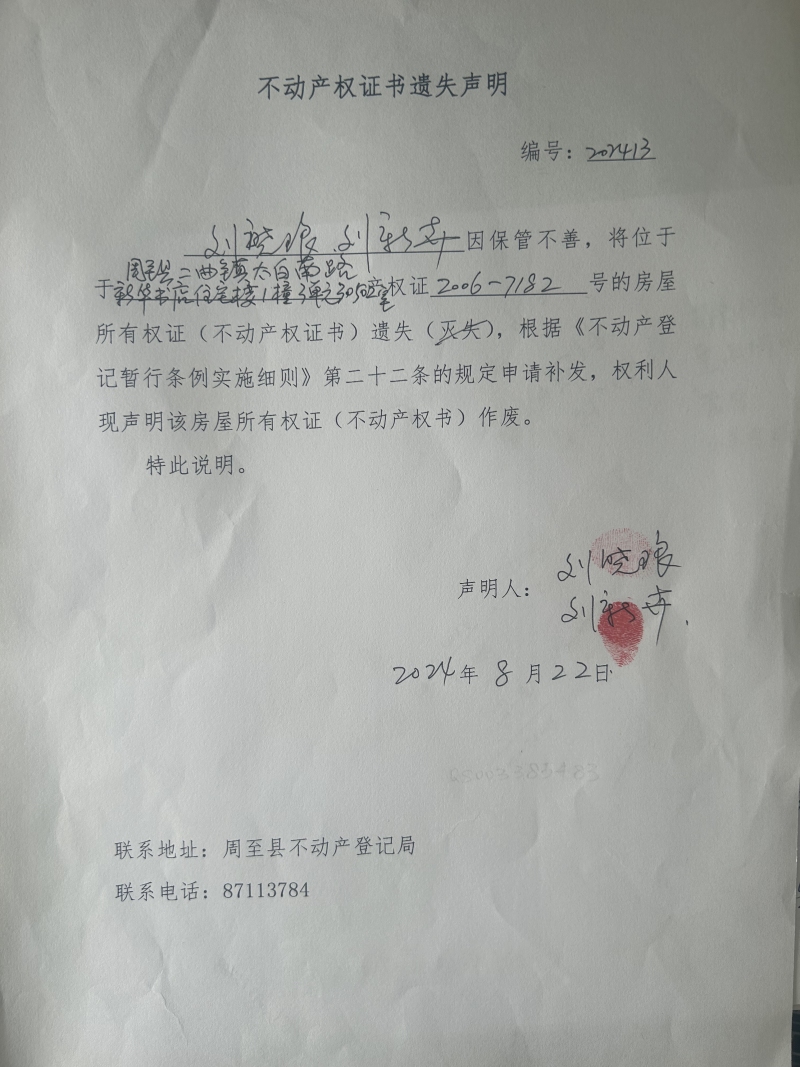 不动产权证书遗失声明
编号：202413
刘晓琅、刘新卉因保管不善，将位于
周至县二曲镇太白南路
于新华书店住宅楼1幢3单元30502室产权证2006-7182号的房屋
所有权证（不动产权证书）遗失（灭失），根据《不动产登
记暂行条例实施细则》第二十二条的规定申请补发，权利人
现声明该房屋所有权证（不动产权书）作废。
特此说明。
刘晓琅
声明人：
刘新卉
2024年8月22日
联系地址：周至县不动产登记局
联系电话：87113784